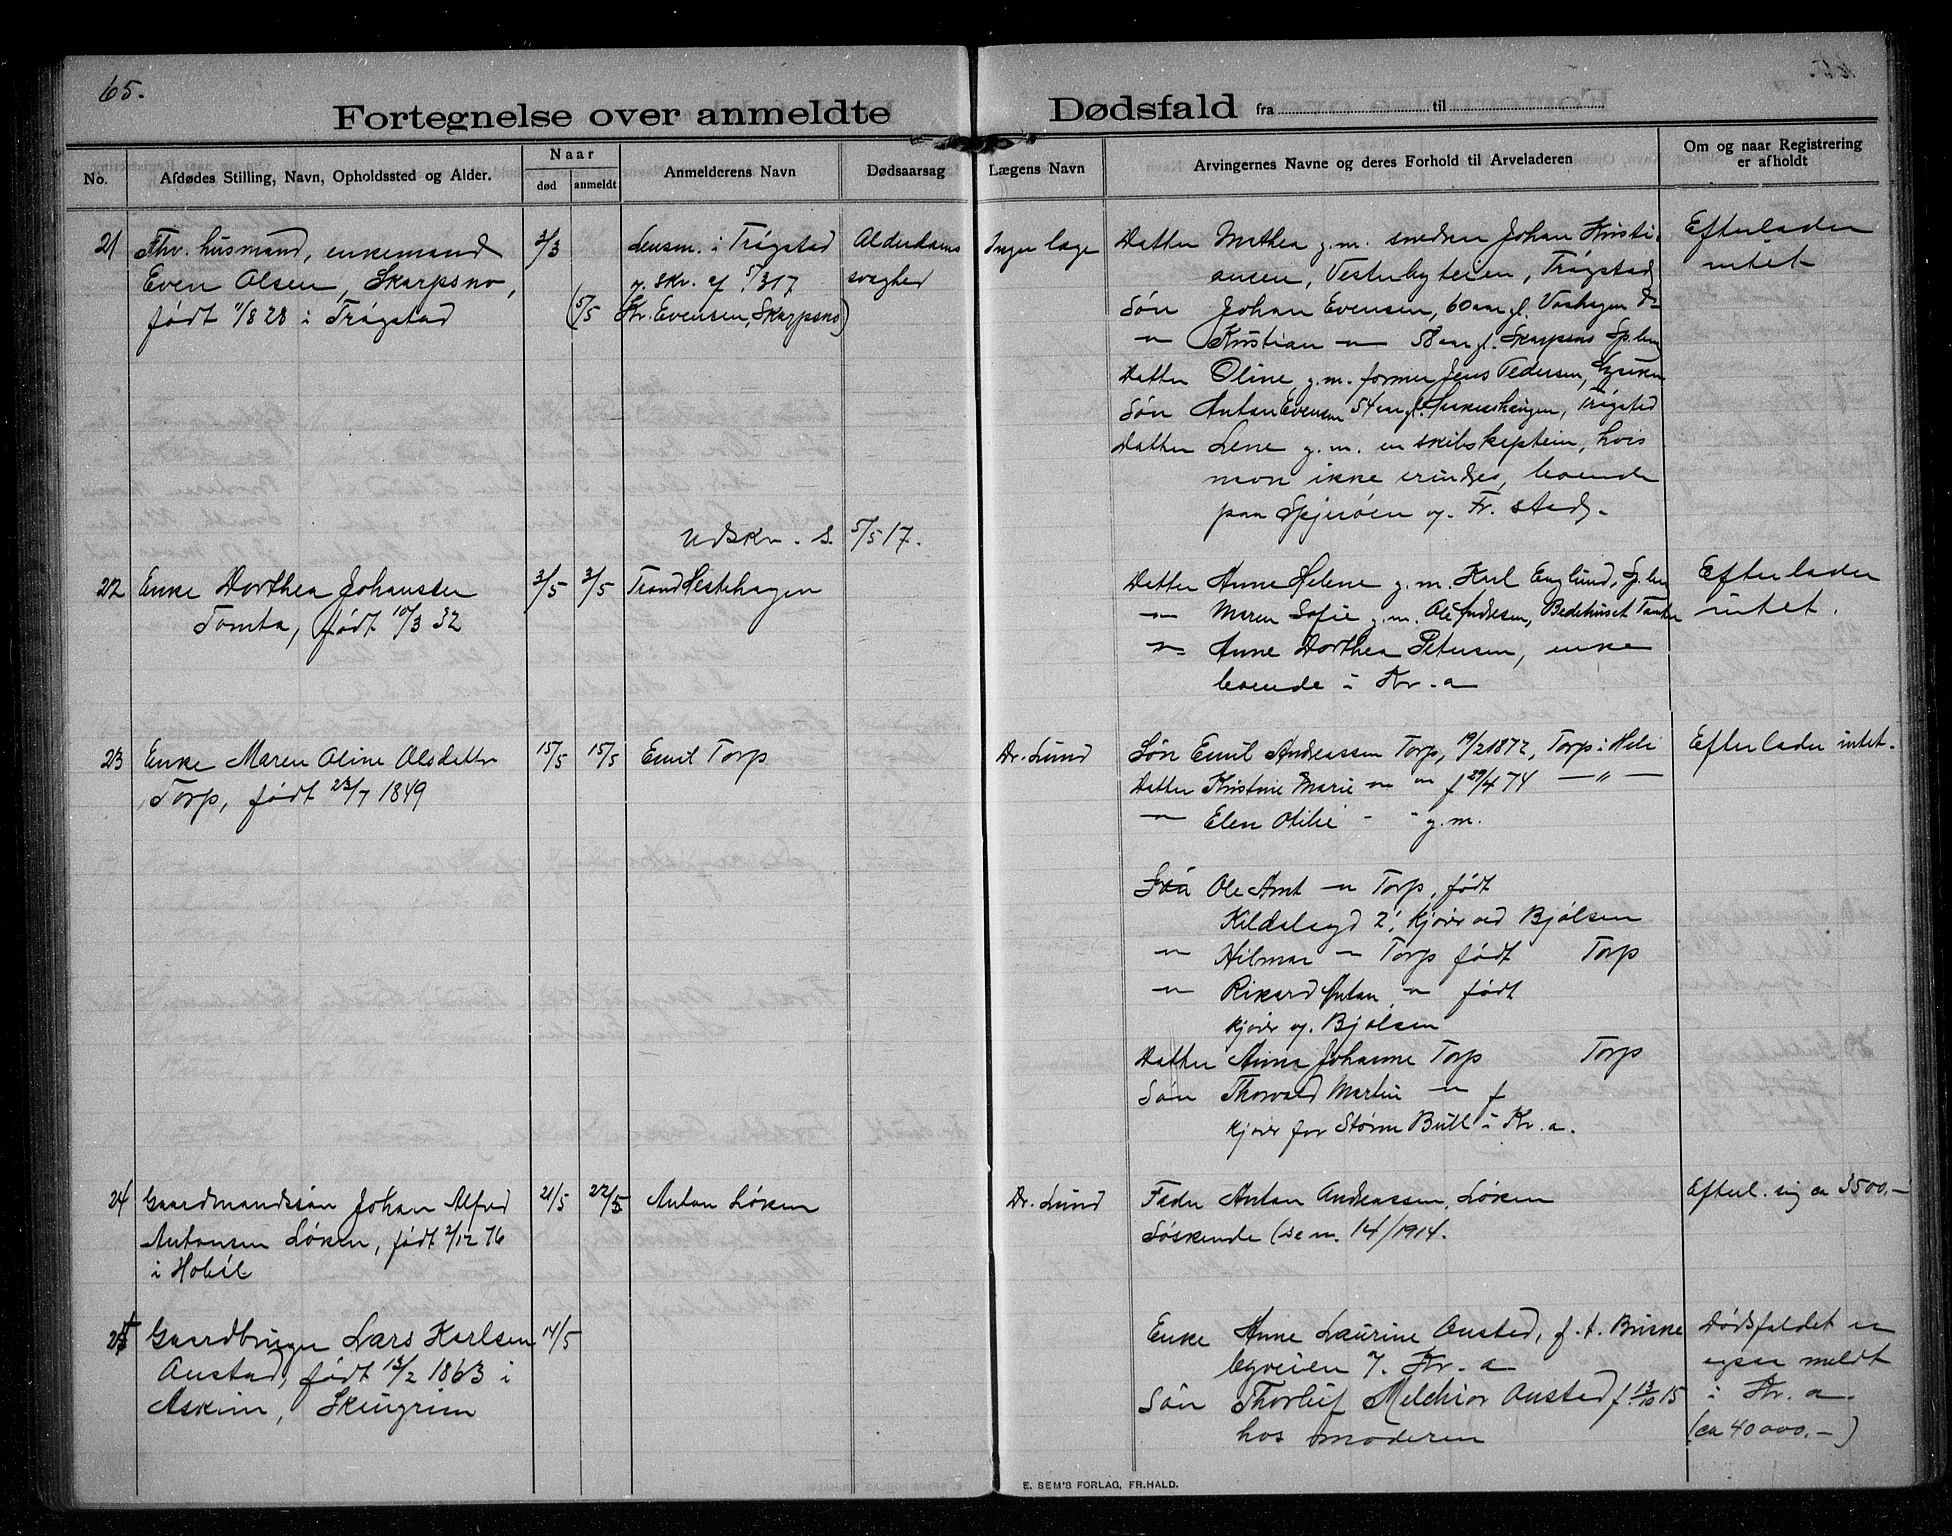 65.
Fortegnelse over anmeldte Dødsfald fra til
No.
Afdødes Stilling, Navn, Opholdssted og Alder.
Naar
død
anmeldt
Anmelderens Navn
Dødsaarsag
Lægens Navn
Arvingernes Navne og deres Forhold til Arveladeren
Om og naar Registrering
er afholdt
21
Fhv. husmand, enkemand
Even Olsen, Skarpsno,
født 11/8 28 i Trøgstad
3/3
(5/5
Lensm. i Trøgstad
g. skr. af 5/3 17
Kr. Evensen, Skarpsno)
Alderdoms
svaghed
Ingen læge
Datter Mathea g.m. snedker Johan Kristi-
ansen, Vesterbyteien, Trøgstad
Søn Johan Evensen, 60 aar gl.
" Kristian " 58 aar gl. Skarpsno Sp.berg
Datter Oline, g.m. former Jens Pedersen,
Søn Anton Evensen 54 aar gl. Trøgstad
Datter Lene g.m. en skibskaptein, hvis
navn ikke erindres, boende
paa Spjerøen v. Fr. stad.
Efterlader
intet
Udskr. S. 5/5 17.
22
Enke Dorthea Johanssen
Tomta, født 10/3 32
3/5
3/5
Trond Hestehagen
Datter Anne Helene g.m. Karl Englund, Sp.berg
" Maren Sofie g.m. Ole Andersen, Bedehuset Tomter
" Anne Dorthea Petersen, enke
boende i Kr.a
Efterlader
intet.
23
Enke Maren Oline Olsdatter
Torp, født 23/7 1849
15/5
15/5
Emil Torp
Dr. Lund
Søn Emil Andreassen Torp, 19/2 1872, Torp i Heli
Datter Kristine Marie " " f 29/4 74 — " —
" Elen Otilie " " g.m.
Søn Ole Arnt " Torp, født
2! kjører ved Bjølsen
" Hilmar " Torp født Torp
" Rikard Anton " født
kjører v. Bjølsen
Datter Anna Johanne Torp Torp
Søn Thorvald Martin " f
kjører for Storm Bull i Kr.a.
Efterlader intet.
24
Gaardmandssøn Johan Alfred
Antonsen Løken, født 2/12 76
i Hobøl
21/5
22/5
Anton Løken
Dr. Lund
Fader Anton Andreassen, Løken
Søskende (se n. 14/1914.
Efterl. sig ca 3500.—
25
Gaardbruger Lars Karlsen
Onstad, født 13/2 1863 i
Askim, Skengrim
14/5
Enke Anne Laurine Onstad, f. t. Briske
byveien 7. Kr.a
Søn Thorleif Melchior Onstad f. 13/10 15
hos moderen
Dødsfaldet er
ogsaa meldt
i Kr.a.
(ca 40000.—)
E. SEM'S FORLAG, FR.HALD.